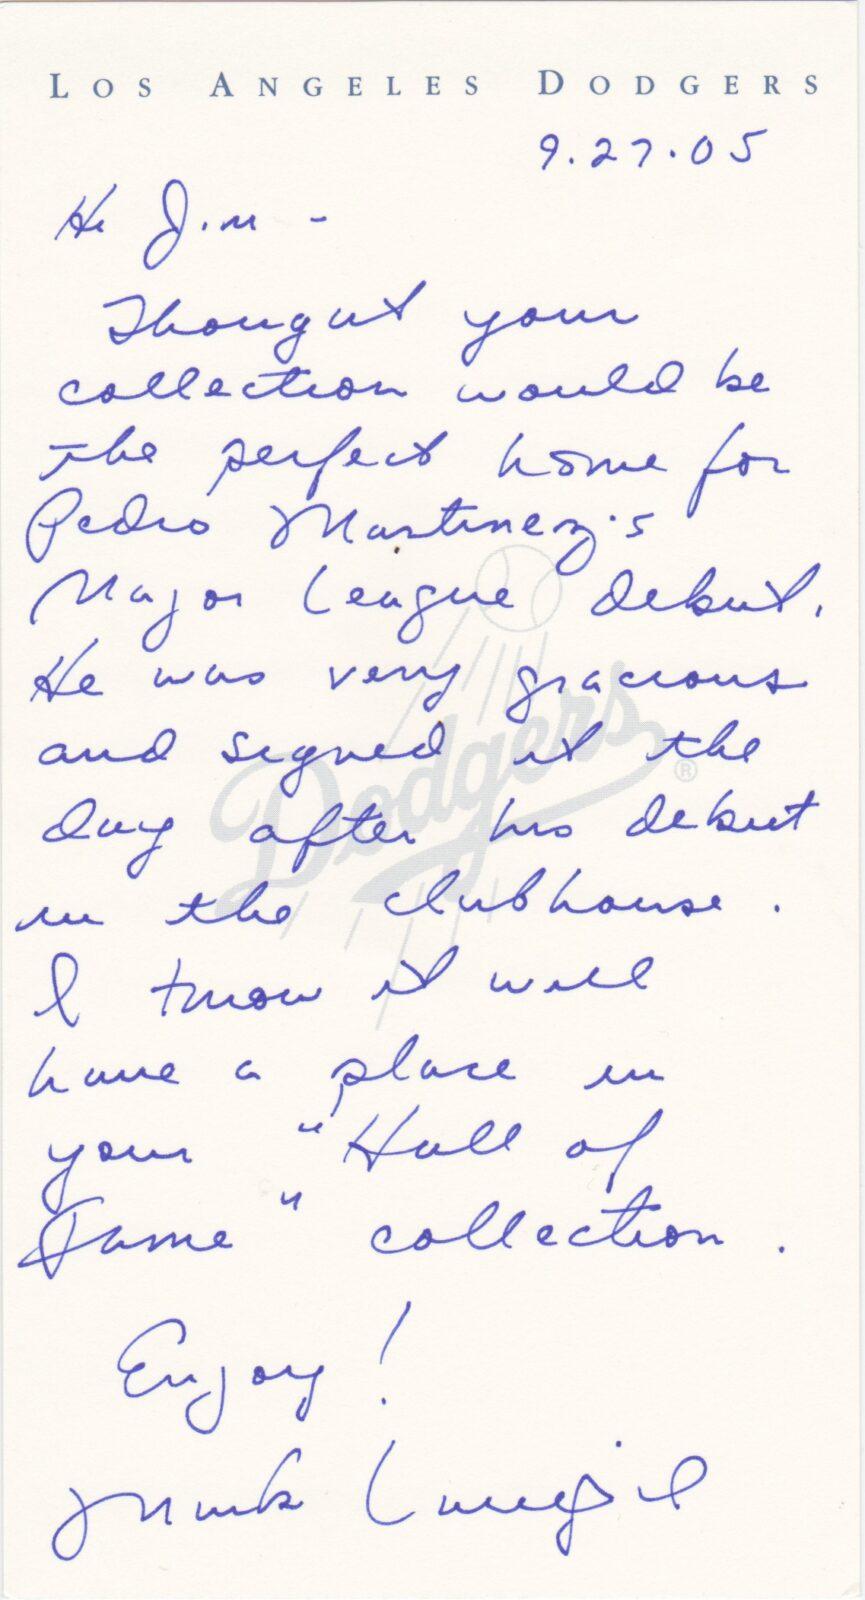 LOS ANGELES DODGERS
9.27.05
Hi Jim -
Thought your
collection would be
the perfect home for
Pedro Martinez's
Major League debut.
He was very gracious
and signed it the
day after his debut
in the clubhouse.
I know it will
have a place in
your "Hall of
Fame" collection.
Enjoy!
Mark Langill
Dodgers
®